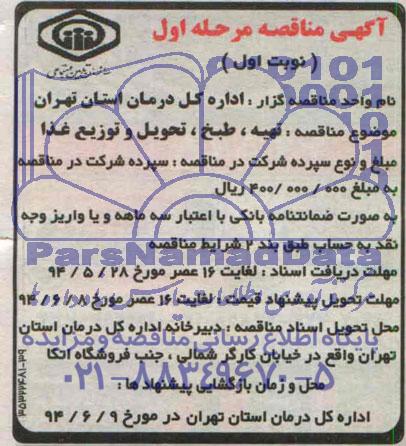 آگهی مناقصه مرحله اول
( نوبت اول )
نام واحد مناقصه گزار : اداره کل درمان استان تهران
موضوع مناقصه : تهیه ، طبخ ، تحویل و توزیع غذا
مبلغ و نوع سپرده شرکت در مناقصه : سپرده شرکت در مناقصه
به مبلغ ۴۰۰/۰۰۰/۰۰۰ ریال
به صورت ضمانتنامه بانکی با اعتبار سه ماهه و یا واریز وجه
نقد به حساب طبق بند ۲ شرایط مناقصه
ParsNamadData
مهلت دریافت اسناد : لغایت ۱۶ عصر مورخ ۲۸ / ۵ / ۹۴
مهلت تحویل پیشنهاد قیمت : لغایت ۱۶ عصر مورخ ۸ / ۶ / ۹۴
محل تحویل اسناد مناقصه : دبیرخانه اداره کل درمان استان
پایگاه اطلاع رسانی مناقصه و مزایده
تهران واقع در خیابان کارگر شمالی ، جنب فروشگاه اتکا
۰۲۱-۸۸۳۴۹۶۷۰-۵
محل و زمان بازگشایی پیشنهاد ها :
اداره کل درمان استان تهران در مورخ ۹ / ۶ / ۹۴